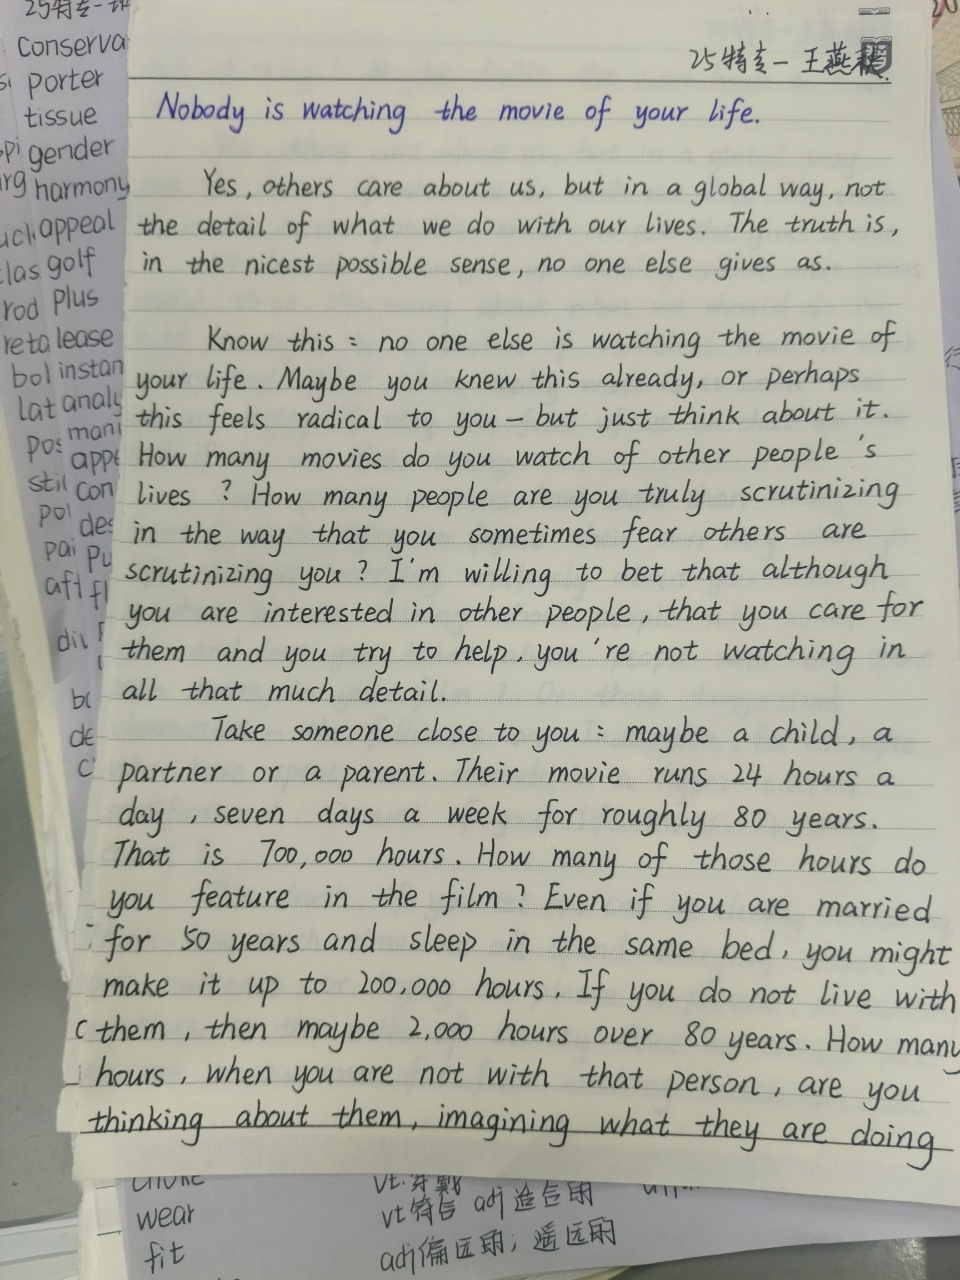 25特专一 王燕
Nobody is watching the movie of your life.
Yes, others care about us, but in a global way, not
the detail of what we do with our lives. The truth is,
in the nicest possible sense, no one else gives as.
Know this : no one else is watching the movie of
your life. Maybe you knew this already, or perhaps
this feels radical to you – but just think about it.
How many movies do you watch of other people 's
lives ? How many people are you truly scrutinizing
in the way that you sometimes fear others are
scrutinizing you ? I'm willing to bet that although
you are interested in other people, that you care for
them and you try to help, you 're not watching in
all that much detail.
Take someone close to you : maybe a child, a
partner or a parent. Their movie runs 24 hours a
day , seven days a week for roughly 80 years.
That is 700,000 hours. How many of those hours do
you feature in the film ? Even if you are married
for 50 years and sleep in the same bed, you might
make it up to 200,000 hours. If you do not live with
them , then maybe 2,000 hours over 80 years. How many
hours, when you are not with that person, are you
thinking about them, imagining what they are doing
25特专一
conserva
porter
tissue
gender
harmony
appeal
golf
plus
lease
instan
analy
mani
appe
con
des
pu
fl
rod
reta
bol
lat
pos
stil
pol
pai
aft
div
de
vt.穿戴
wear
vt符合 adj 适合的
fit
adj偏远的; 遥远的